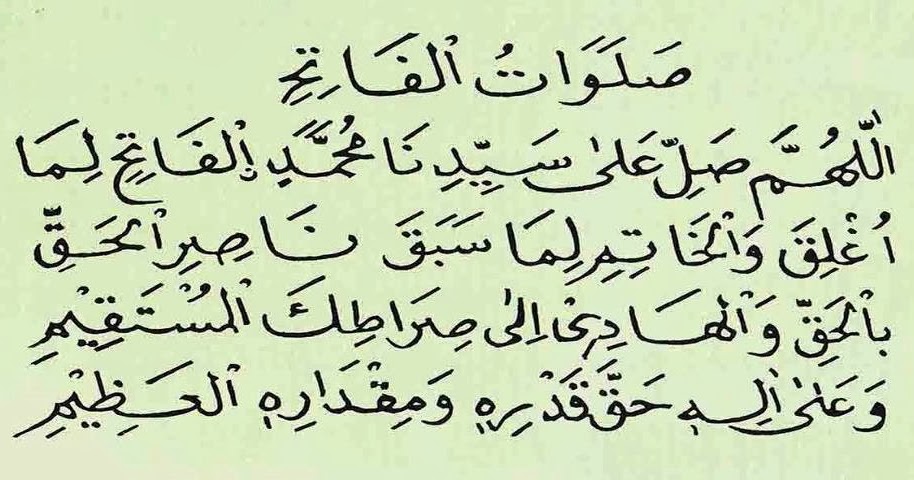 صَلَوَاتُ الْفَاتِحِ
اَللّٰهُمَّ صَلِّ عَلٰى سَيِّدِنَا مُحَمَّدٍ اِلْفَاتِحِ لِمَا
اُغْلِقَ وَالْخَاتِمِ لِمَا سَبَقَ نَاصِرِ الْحَقِّ
بِالْحَقِّ وَالْهَادِىْ اِلٰى صِرَاطِكَ الْمُسْتَقِيْمِ
وَعَلٰى اٰلِهٖ حَقَّ قَدْرِهٖ وَمِقْدَارِهٖ الْعَظِيْمِ